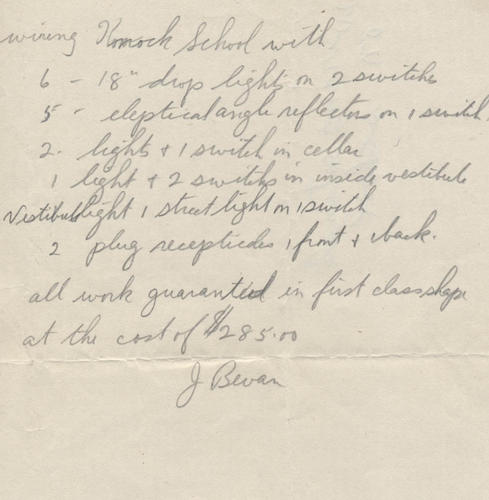 wiring Komock School with
6 - 18" drop lights on 2 switches
5 - elepticalangle reflectors on 1 switch.
2. lights + 1 switch in cellar
1 light + 2 switchs in inside vestibule
Vestibule light 1 street light on 1 switch
2 plug recepticles 1 front + 1 back.
all work guaranteed in first class shape
at the cost of $285.00
J Bevan